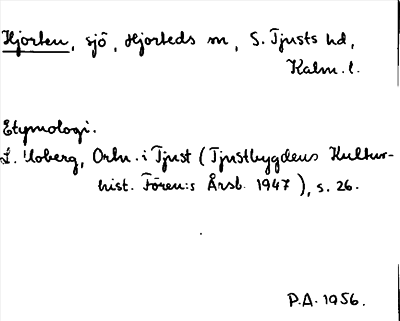 Hjorten, sjö, Hjorteds sn, S. Tjusts hd,
Kalm. l.
Etymologi.
L. Moberg, Ortn. i Tjust (Tjustbygdens Kultur-
hist. Fören:s Årsb. 1947), s. 26.
P.A. 1956.